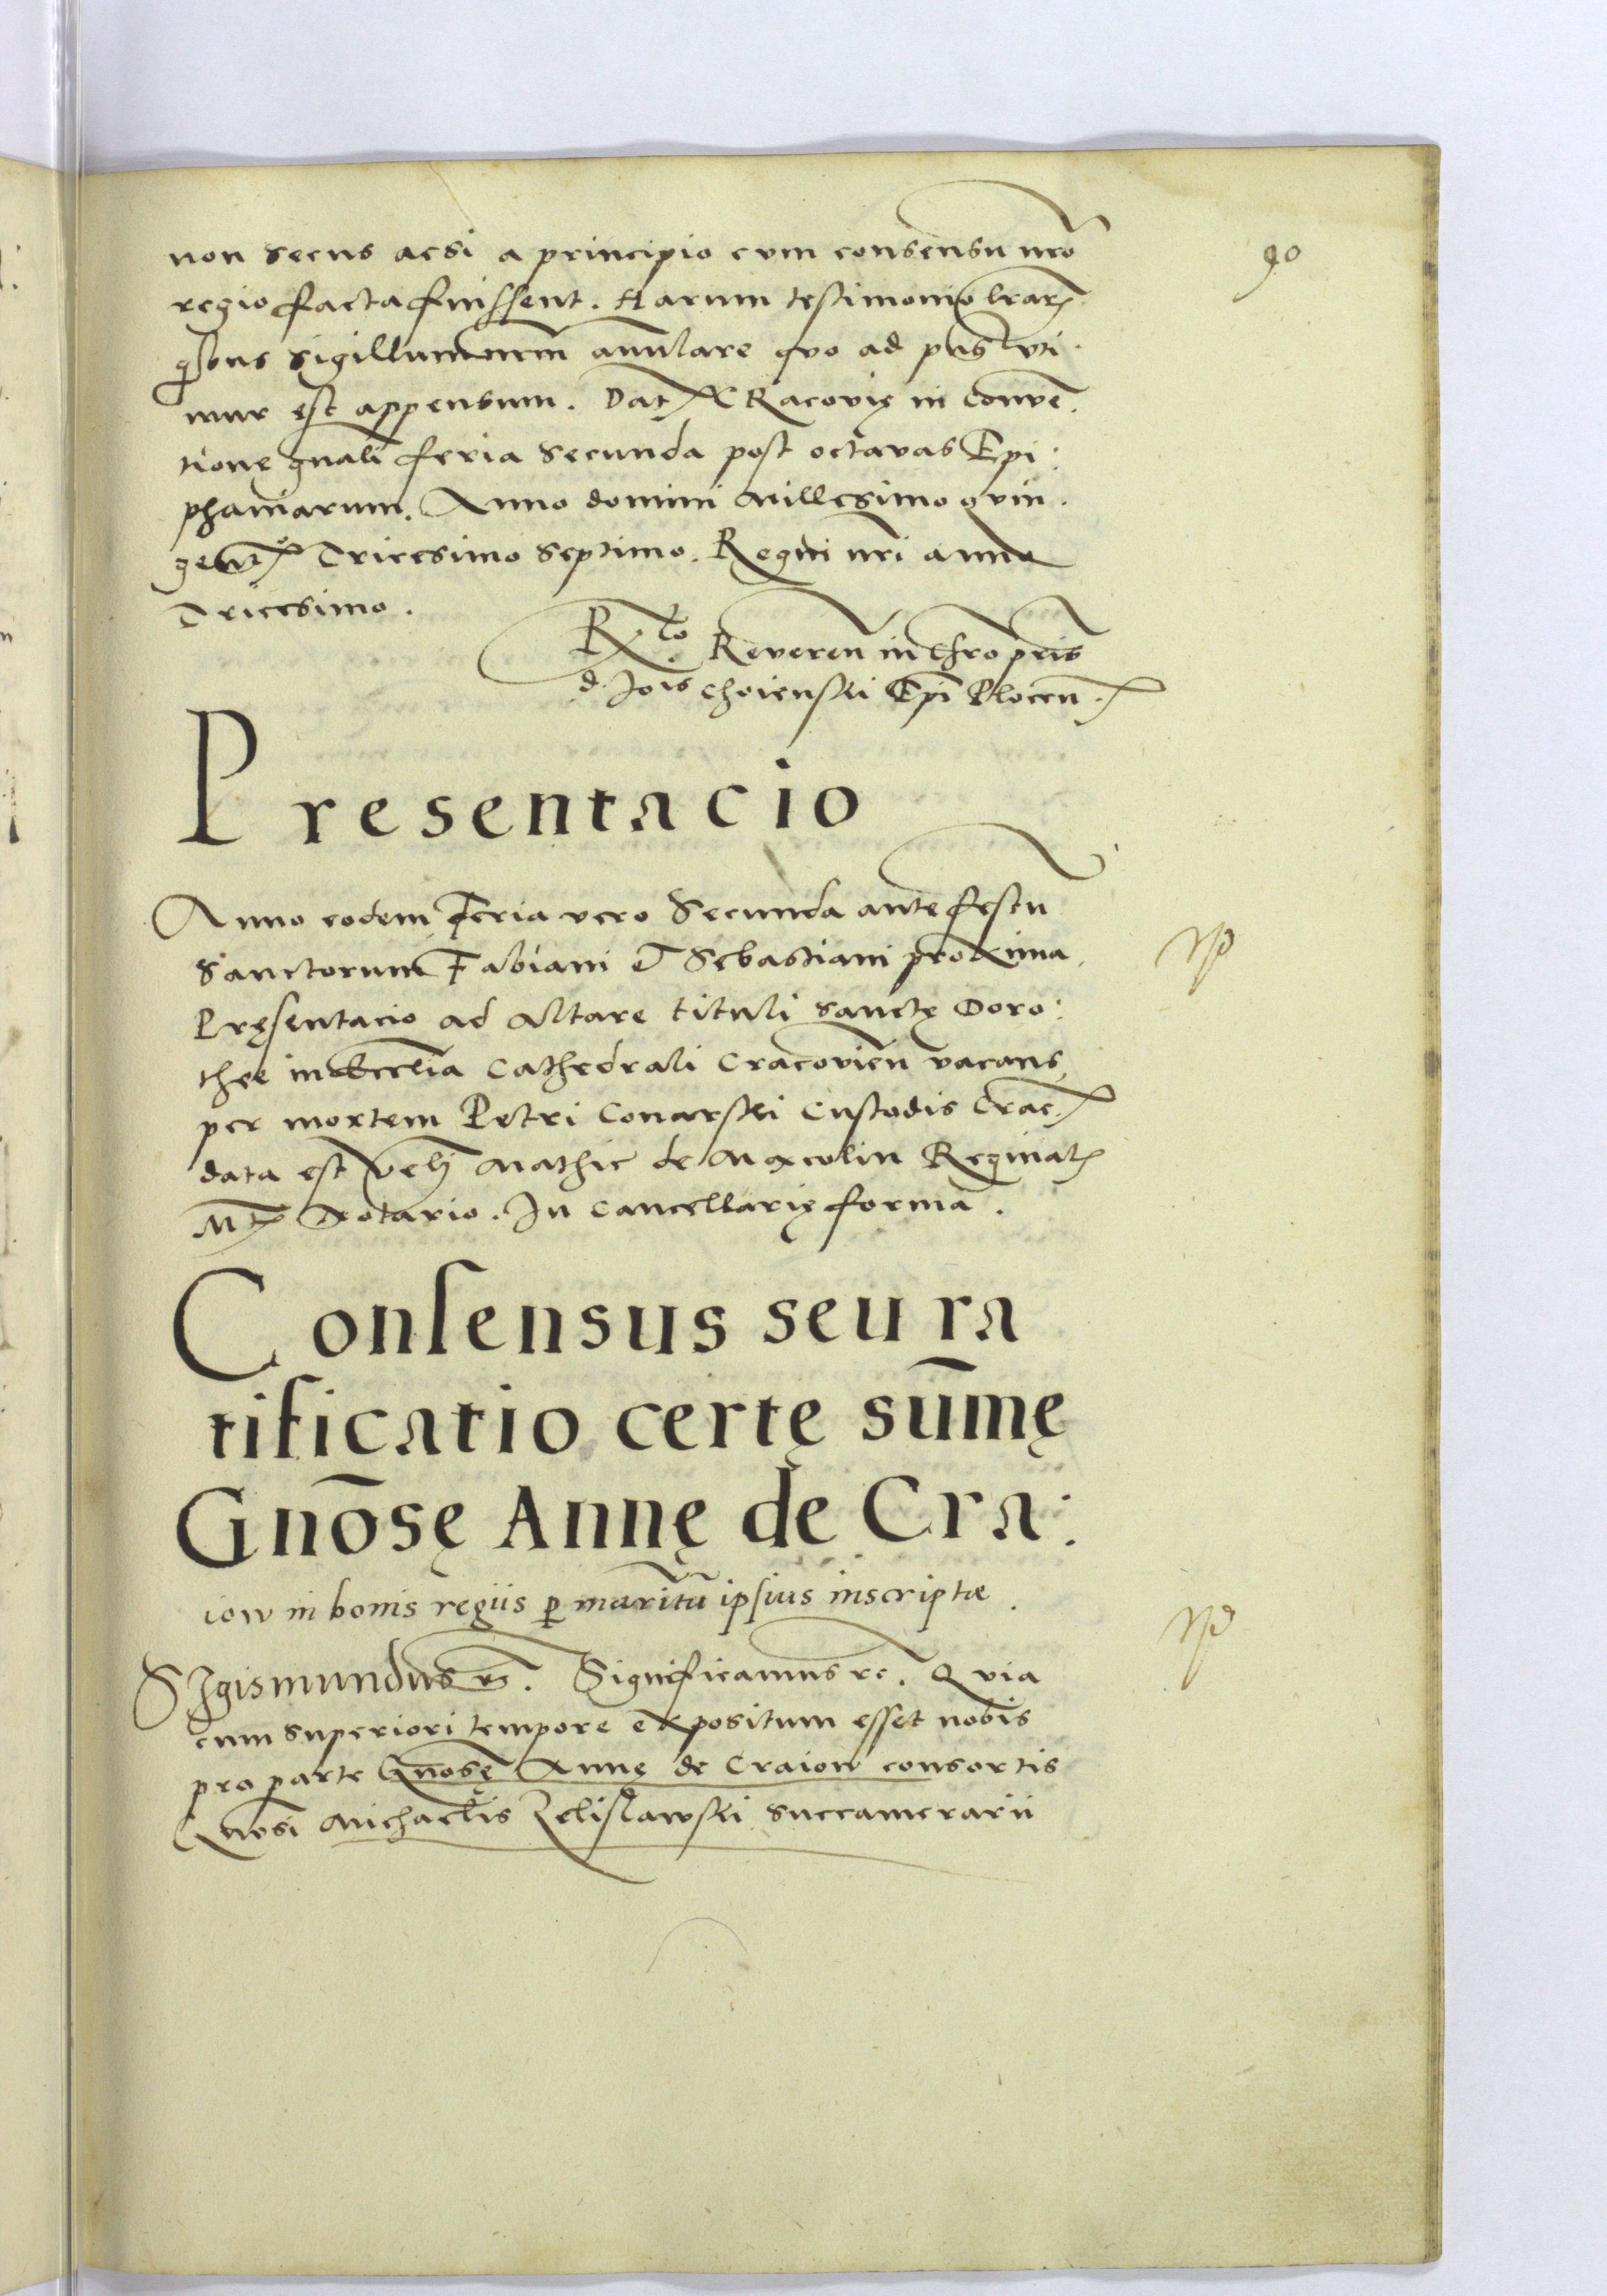 non secus acsi a principio cum consensu nrō
90
regio facta fuissent. Harum testimonio lrarꝫ
qͥbus sigillum nrm̄ anulare quo ad pn̄s uti
mur est appensum. Datꝫ CRacovię in conven̄
tione gn̄ali feria secunda post octavas Epi:
phaniarum. Anno domini Millesimo quin
gentꝫᵒ Tricesimo septimo. Regni nri anno
Tricesimo.
Rᵗᵒ. Reveren̄ in Chro pr̄is
d. Jois Choienski Ep̄i Plocen̄.
Presentacio
Anno eodem Feria vero Secunda ante festū
Sanctorum Fabiani et Sebastiani proxima
Pręsentacio ad Altare tituli sanctę Doro:
thee in Eccl̄ia Cathedrali Cracovien̄ vacans
per mortem Petri Conarski Custodis Crac.
data est Mathie de Reginalꝫ
Mtꝫ Notario. In Cancellarię forma.
Consensus seu ra
tificatio certę sum̄ę
Gnōsę Annę de Cra:
iow in bonis regiis ꝑ maritū ipsius inscriptæ.
SIgismundus rc. Significamus rc. Quia
cum superiori tempore expositum esset nobis
pro parte Gnōsę Annę de Craiow consortis
Gnōsi Michaelis Zelislawski succamerarii